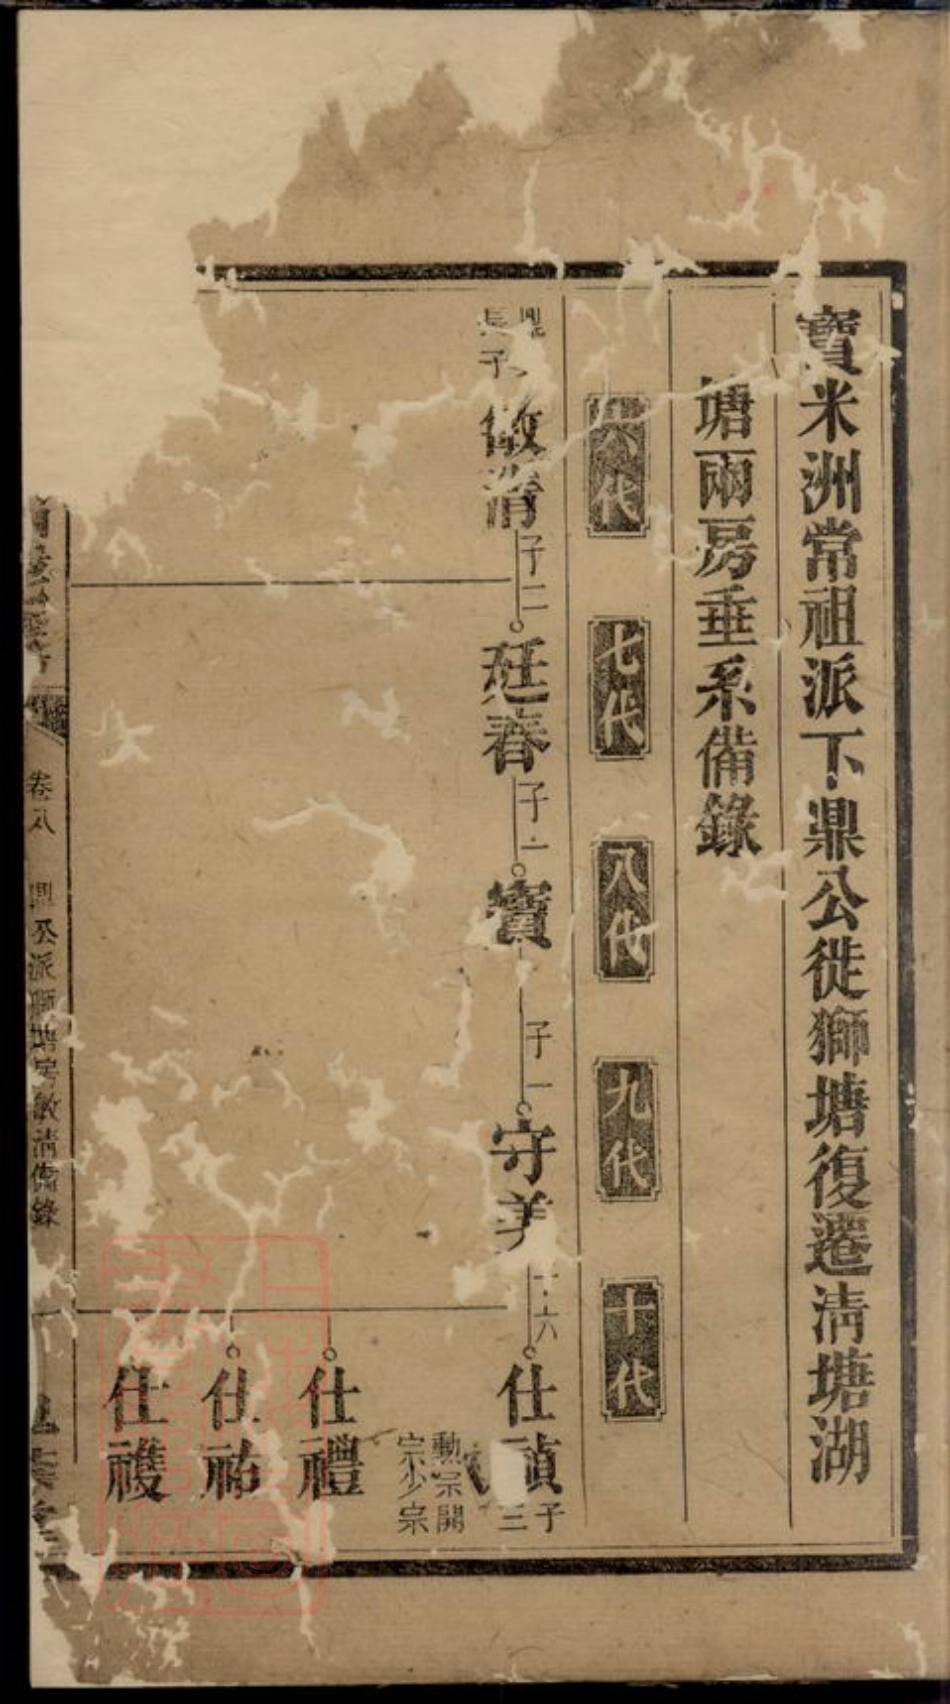 寶米洲常祖派下鼎公徙獅塘復遷淸塘湖
塘兩房垂系備錄
六代
七代
八代
九代
十代
鼎
長子
敏淸
子二
廷春
子一
寶
子一
守美
六
仕禎
子三
勳宗開
宗少宗
仕禮
仕祐
仕䕶
卷八
鼎公派獅塘房敏淸備錄